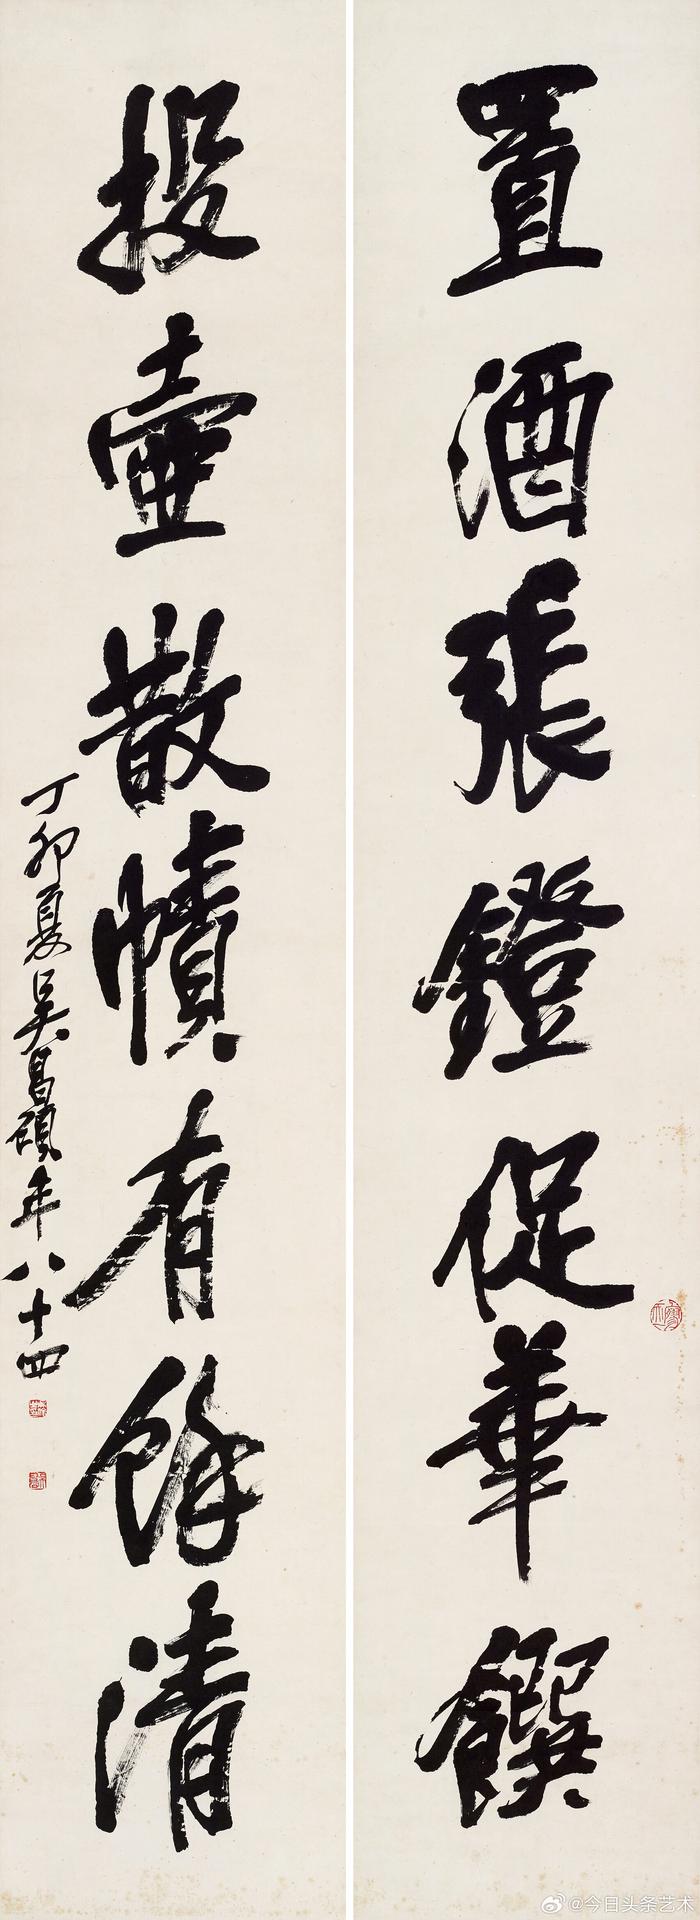 置酒張鐙促華饌
投壷散幘有餘清
丁卯夏吳昌碩年八十四
@今日头条艺术